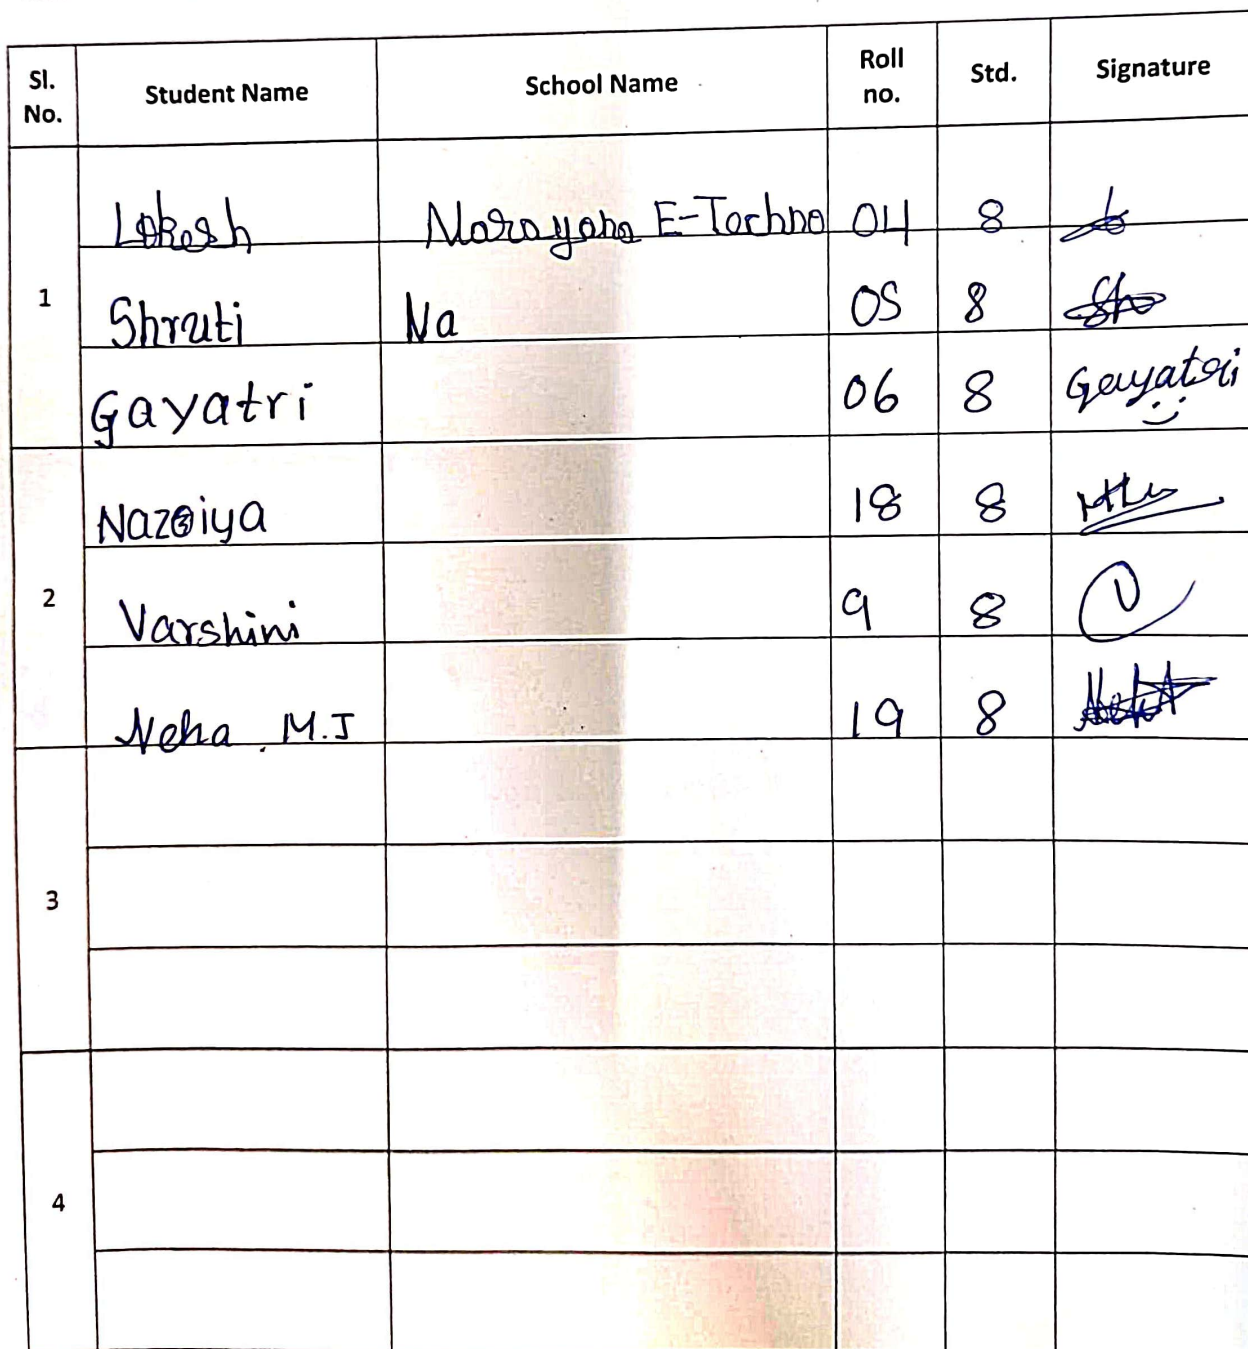 Sl. No. Student Name School Name Roll no. Std. Signature
Lokesh Narayana E-Techno 04 8
1
Shruti Na 05 8
Gayatri 06 8 Gayatri
18 8
2
Varshini 9 8
Neha . M.J 19 8
3
4